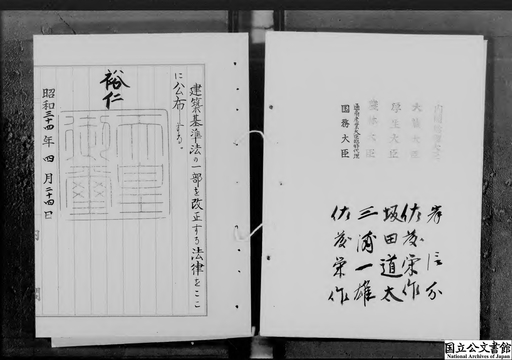 建築基準法の一部を改正する法律をここ
に公布する。
裕仁
天皇御璽
昭和三十四年四月二十四日
内閣総理大臣
大蔵大臣
厚生大臣
農林大臣
通商産業大臣臨時代理
国務大臣
岸信介
佐藤栄作
坂田道太
三浦一雄
佐藤栄作
国立公文書館
National Archives of Japan